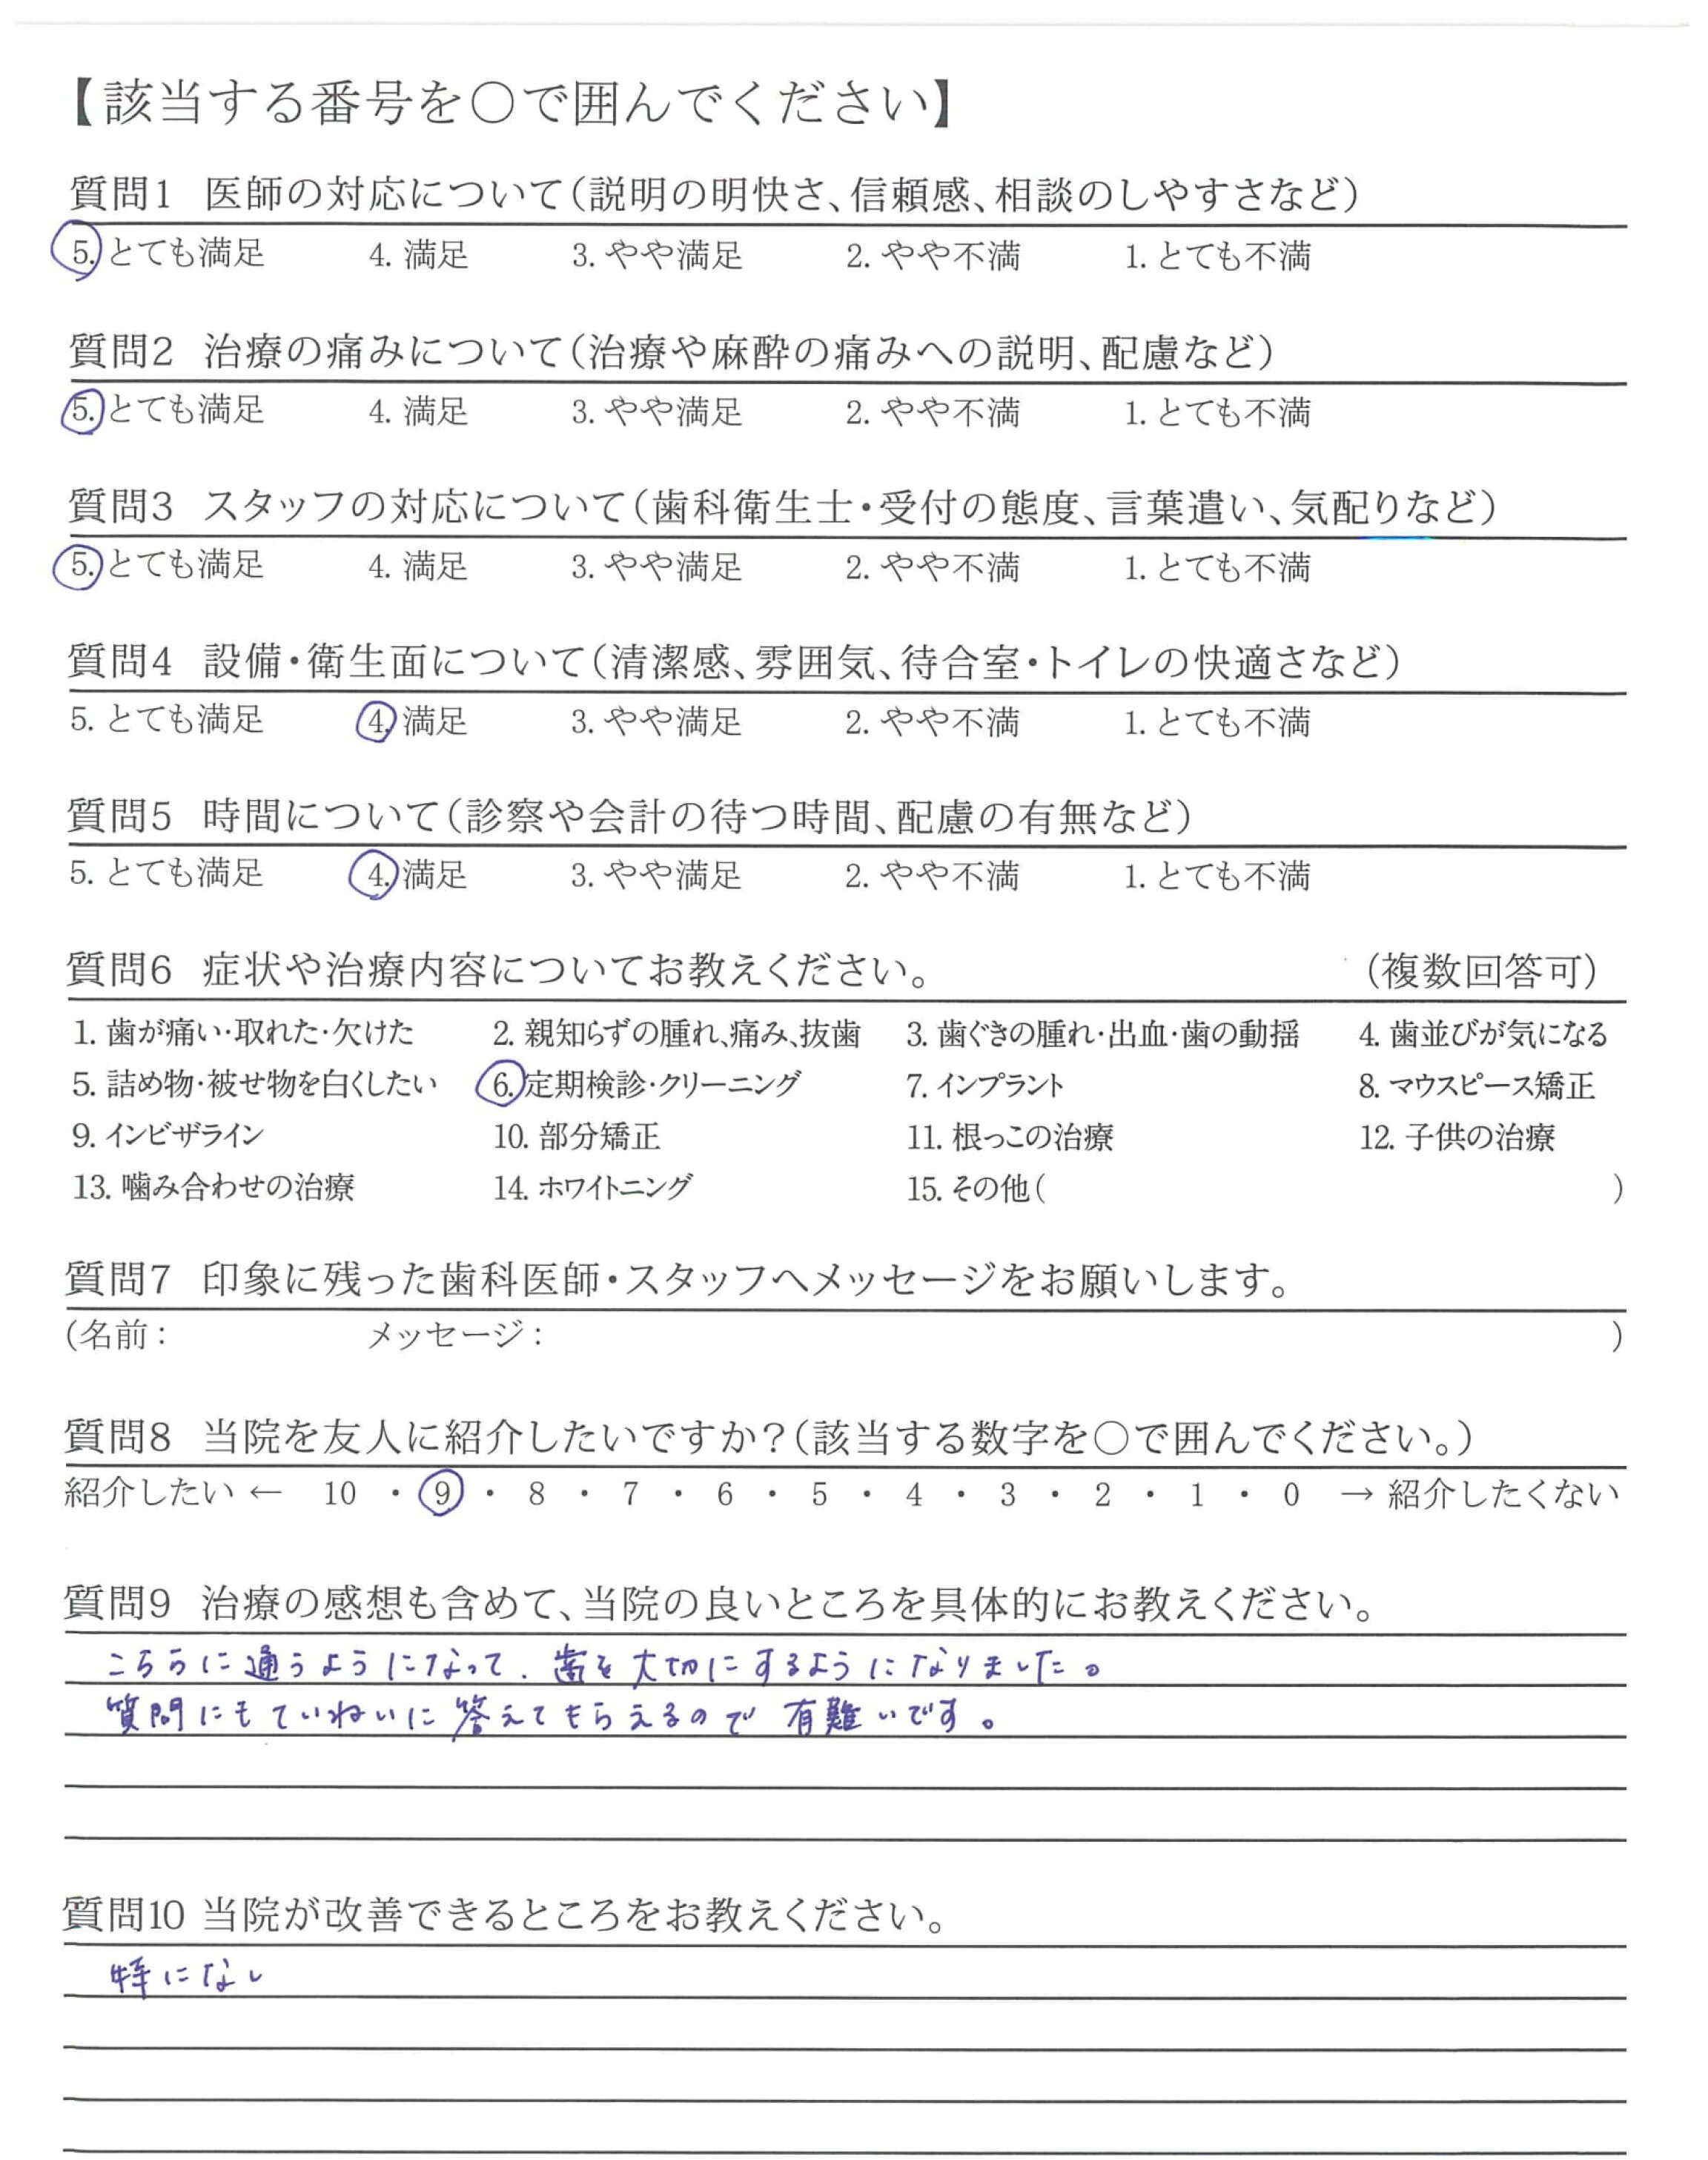 【該当する番号を○で囲んでください】
質問1 医師の対応について(説明の明快さ、信頼感、相談のしやすさなど)
5. とても満足 4. 満足 3. やや満足 2. やや不満 1. とても不満
質問2 治療の痛みについて(治療や麻酔の痛みへの説明、配慮など)
5. とても満足 4. 満足 3. やや満足 2. やや不満 1. とても不満
質問3 スタッフの対応について(歯科衛生士・受付の態度、言葉遣い、気配りなど)
5. とても満足 4. 満足 3. やや満足 2. やや不満 1. とても不満
質問4 設備・衛生面について(清潔感、雰囲気、待合室・トイレの快適さなど)
5. とても満足 4. 満足 3. やや満足 2. やや不満 1. とても不満
質問5 時間について(診察や会計の待つ時間、配慮の有無など)
5. とても満足 4. 満足 3. やや満足 2. やや不満 1. とても不満
質問6 症状や治療内容についてお教えください。 (複数回答可)
1. 歯が痛い・取れた・欠けた 2. 親知らずの腫れ、痛み、抜歯 3. 歯ぐきの腫れ・出血・歯の動揺 4. 歯並びが気になる
5. 詰め物・被せ物を白くしたい 6. 定期検診・クリーニング 7. インプラント 8. マウスピース矯正
9. インビザライン 10. 部分矯正 11. 根っこの治療 12. 子供の治療
13. 噛み合わせの治療 14. ホワイトニング 15. その他( )
質問7 印象に残った歯科医師・スタッフへメッセージをお願いします。
(名前: メッセージ: )
質問8 当院を友人に紹介したいですか?(該当する数字を○で囲んでください。)
紹介したい ← 10 ・ 9 ・ 8 ・ 7 ・ 6 ・ 5 ・ 4 ・ 3 ・ 2 ・ 1 ・ 0 → 紹介したくない
質問9 治療の感想も含めて、当院の良いところを具体的にお教えください。
こちらに通うようになって、歯を大切にするようになりました。
質問にもていねいに答えてもらえるので有難いです。
質問10 当院が改善できるところをお教えください。
特になし